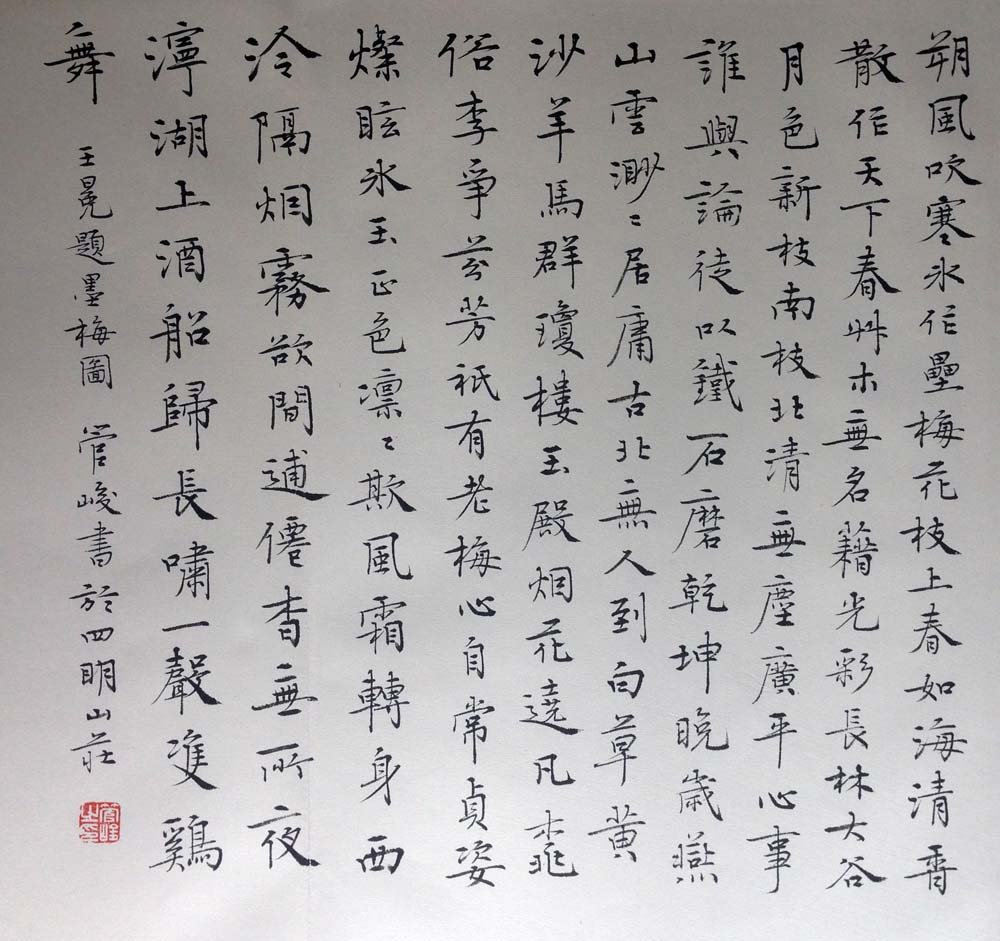 朔風吹寒冰作壘梅花枝上春如海清香
散作天下春艸木無名藉光彩長林大谷
月色新枝南枝北清無塵廣平心事
誰與論徒以鐵石磨乾坤晚歲燕
山雲渺〻居庸古北無人到白草黃
沙羊馬群瓊樓玉殿烟花遶凡桃
俗李爭芬芳祇有老梅心自常貞姿
燦眩冰玉正色凛〻欺風霜轉身西
泠隔烟霧欲間逋僊杳無所夜
濘湖上酒船歸長嘯一聲雙鷄
舞
王冕題墨梅圖 管峻書於四明山莊
管峻之印